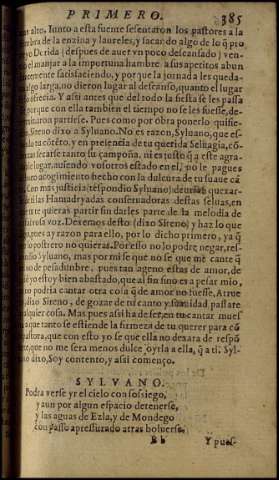 PRIMERO.
385
an alto. Iunto a esta fuente sesentaron los pastores a la
bra de la enzina y laureles, y sacando algo de lo q̃ pro
Derida (despues de auer vn poco descansado) ven
el manjar a la importuna hambre a sus apetitos abun
satisfaciendo, y por que la jornada les queda-
algo larga, no dieron lugar al descanso, quanto el lugar
ofrecia. Y assi antes que del todo la siesta se les passa
porque con ella tambien el tiempo no se les fuesse, de-
minaron partirse. Pues como por obra ponerlo quisie-
Sireno dixo a Syluano. No es razon, Syluano, que es-
tu cõtẽto, y en presencia de tu querida Seluagia, cõ
secarse tanto tu campoña, ni es justo q̃ a este agra-
lugar, auiendo vosotros estado en el, no le pagues
acogimiento hecho con la dulçura de tu suaue cã
Con mas justicia (respondio Syluano) deurian quexar-
las Hamadryadas conseruadoras destas seluas, en
te quieras partir sin darles parte de la melodia de
tu voz. Dexemos desto (dixo Sireno) y haz lo que
pues ay razon para ello, por lo dicho primero, ya q̃
lo postrero no quieras. Por esso no lo podre negar, res-
Syluano, mas por mi fe que no se que me cante q̃
no de pesadũbre, pues tan ageno estas de amor, de
yo estoy bien abastado, que al fin sino es a pesar mio,
podria cantar otra cosa q̃ de amor no fuesse. A true
(dixo Sireno, de gozar de tu canto y suauidad passare
qualquier cosa. Mas pues assi ha de ser, en tu cantar mues
que tanto se estiende la firmeza de tu querer para cõ
pastora, que con esto yo se que ella no dexara de respõ
que no me sera menos dulce oyrla a ella, q̃ a ti. Syl-
dixo, Soy contento, y assi començo.
SYLVANO.
Podra verse yr el cielo con sossiego,
y aun por algun espacio detenerse,
y las aguas de Ezla, y de Mondego
con passo apressurado atras boluerse.
Bb
Y pues